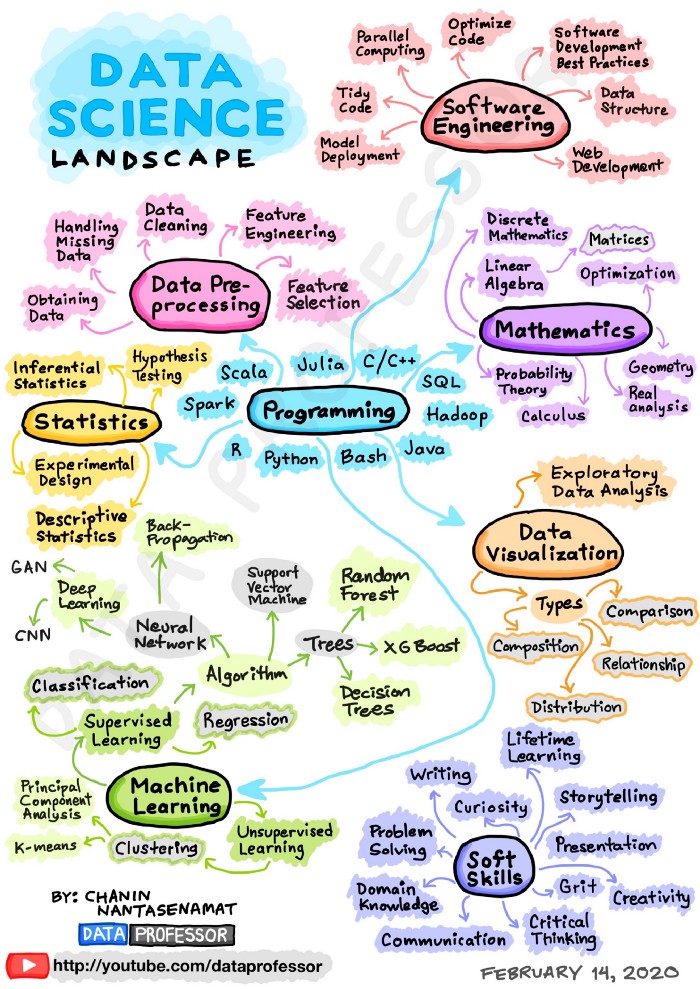 DATA
SCIENCE
LANDSCAPE
Parallel
Computing
Optimize
Code
Software
Development
Best Practices
Tidy
Code
Software
Engineering
Data
Structure
Model
Deployment
Web
Development
Handling
Missing
Data
Data
Cleaning
Feature
Engineering
Obtaining
Data
Data Pre-
processing
Feature
Selection
Discrete
Mathematics
Matrices
Linear
Algebra
Optimization
Mathematics
Probability
Theory
Calculus
Geometry
Real
analysis
Inferential
Statistics
Hypothesis
Testing
Statistics
Experimental
Design
Descriptive
Statistics
Scala
Julia
C/C++
SQL
Spark
Programming
Hadoop
R
Python
Bash
Java
Exploratory
Data Analysis
Data
Visualization
Types
Comparison
Composition
Relationship
Distribution
Back-
Propagation
GAN
Deep
Learning
CNN
Neural
Network
Support
Vector
Machine
Random
Forest
Trees
XGBoost
Decision
Trees
Algorithm
Classification
Supervised
Learning
Regression
Machine
Learning
Principal
Component
Analysis
K-means
Clustering
Unsupervised
Learning
Lifetime
Learning
Writing
Curiosity
Storytelling
Problem
Solving
Soft
Skills
Presentation
Domain
Knowledge
Grit
Creativity
Communication
Critical
Thinking
BY: CHANIN
NANTASENAMAT
DATA PROFESSOR
http://youtube.com/dataprofessor
FEBRUARY 14, 2020
DATA PROFESSOR